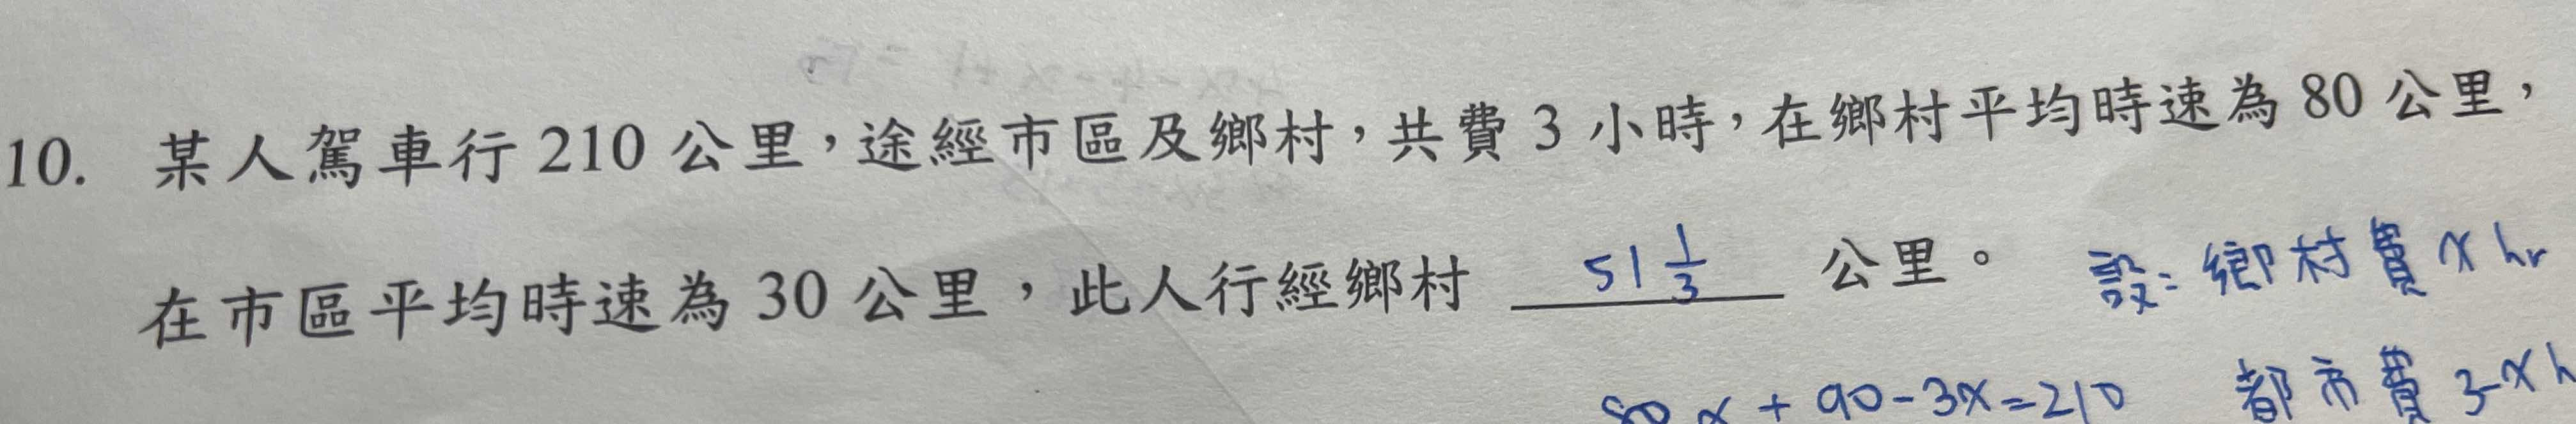 10. 某人駕車行 210 公里，途經市區及鄉村，共費 3 小時，在鄉村平均時速為 80 公里，
在市區平均時速為 30 公里，此人行經鄉村 51 1/3 公里。 設：鄉村費 x hr
80x + 90 - 3x = 210 都市費 3-x h